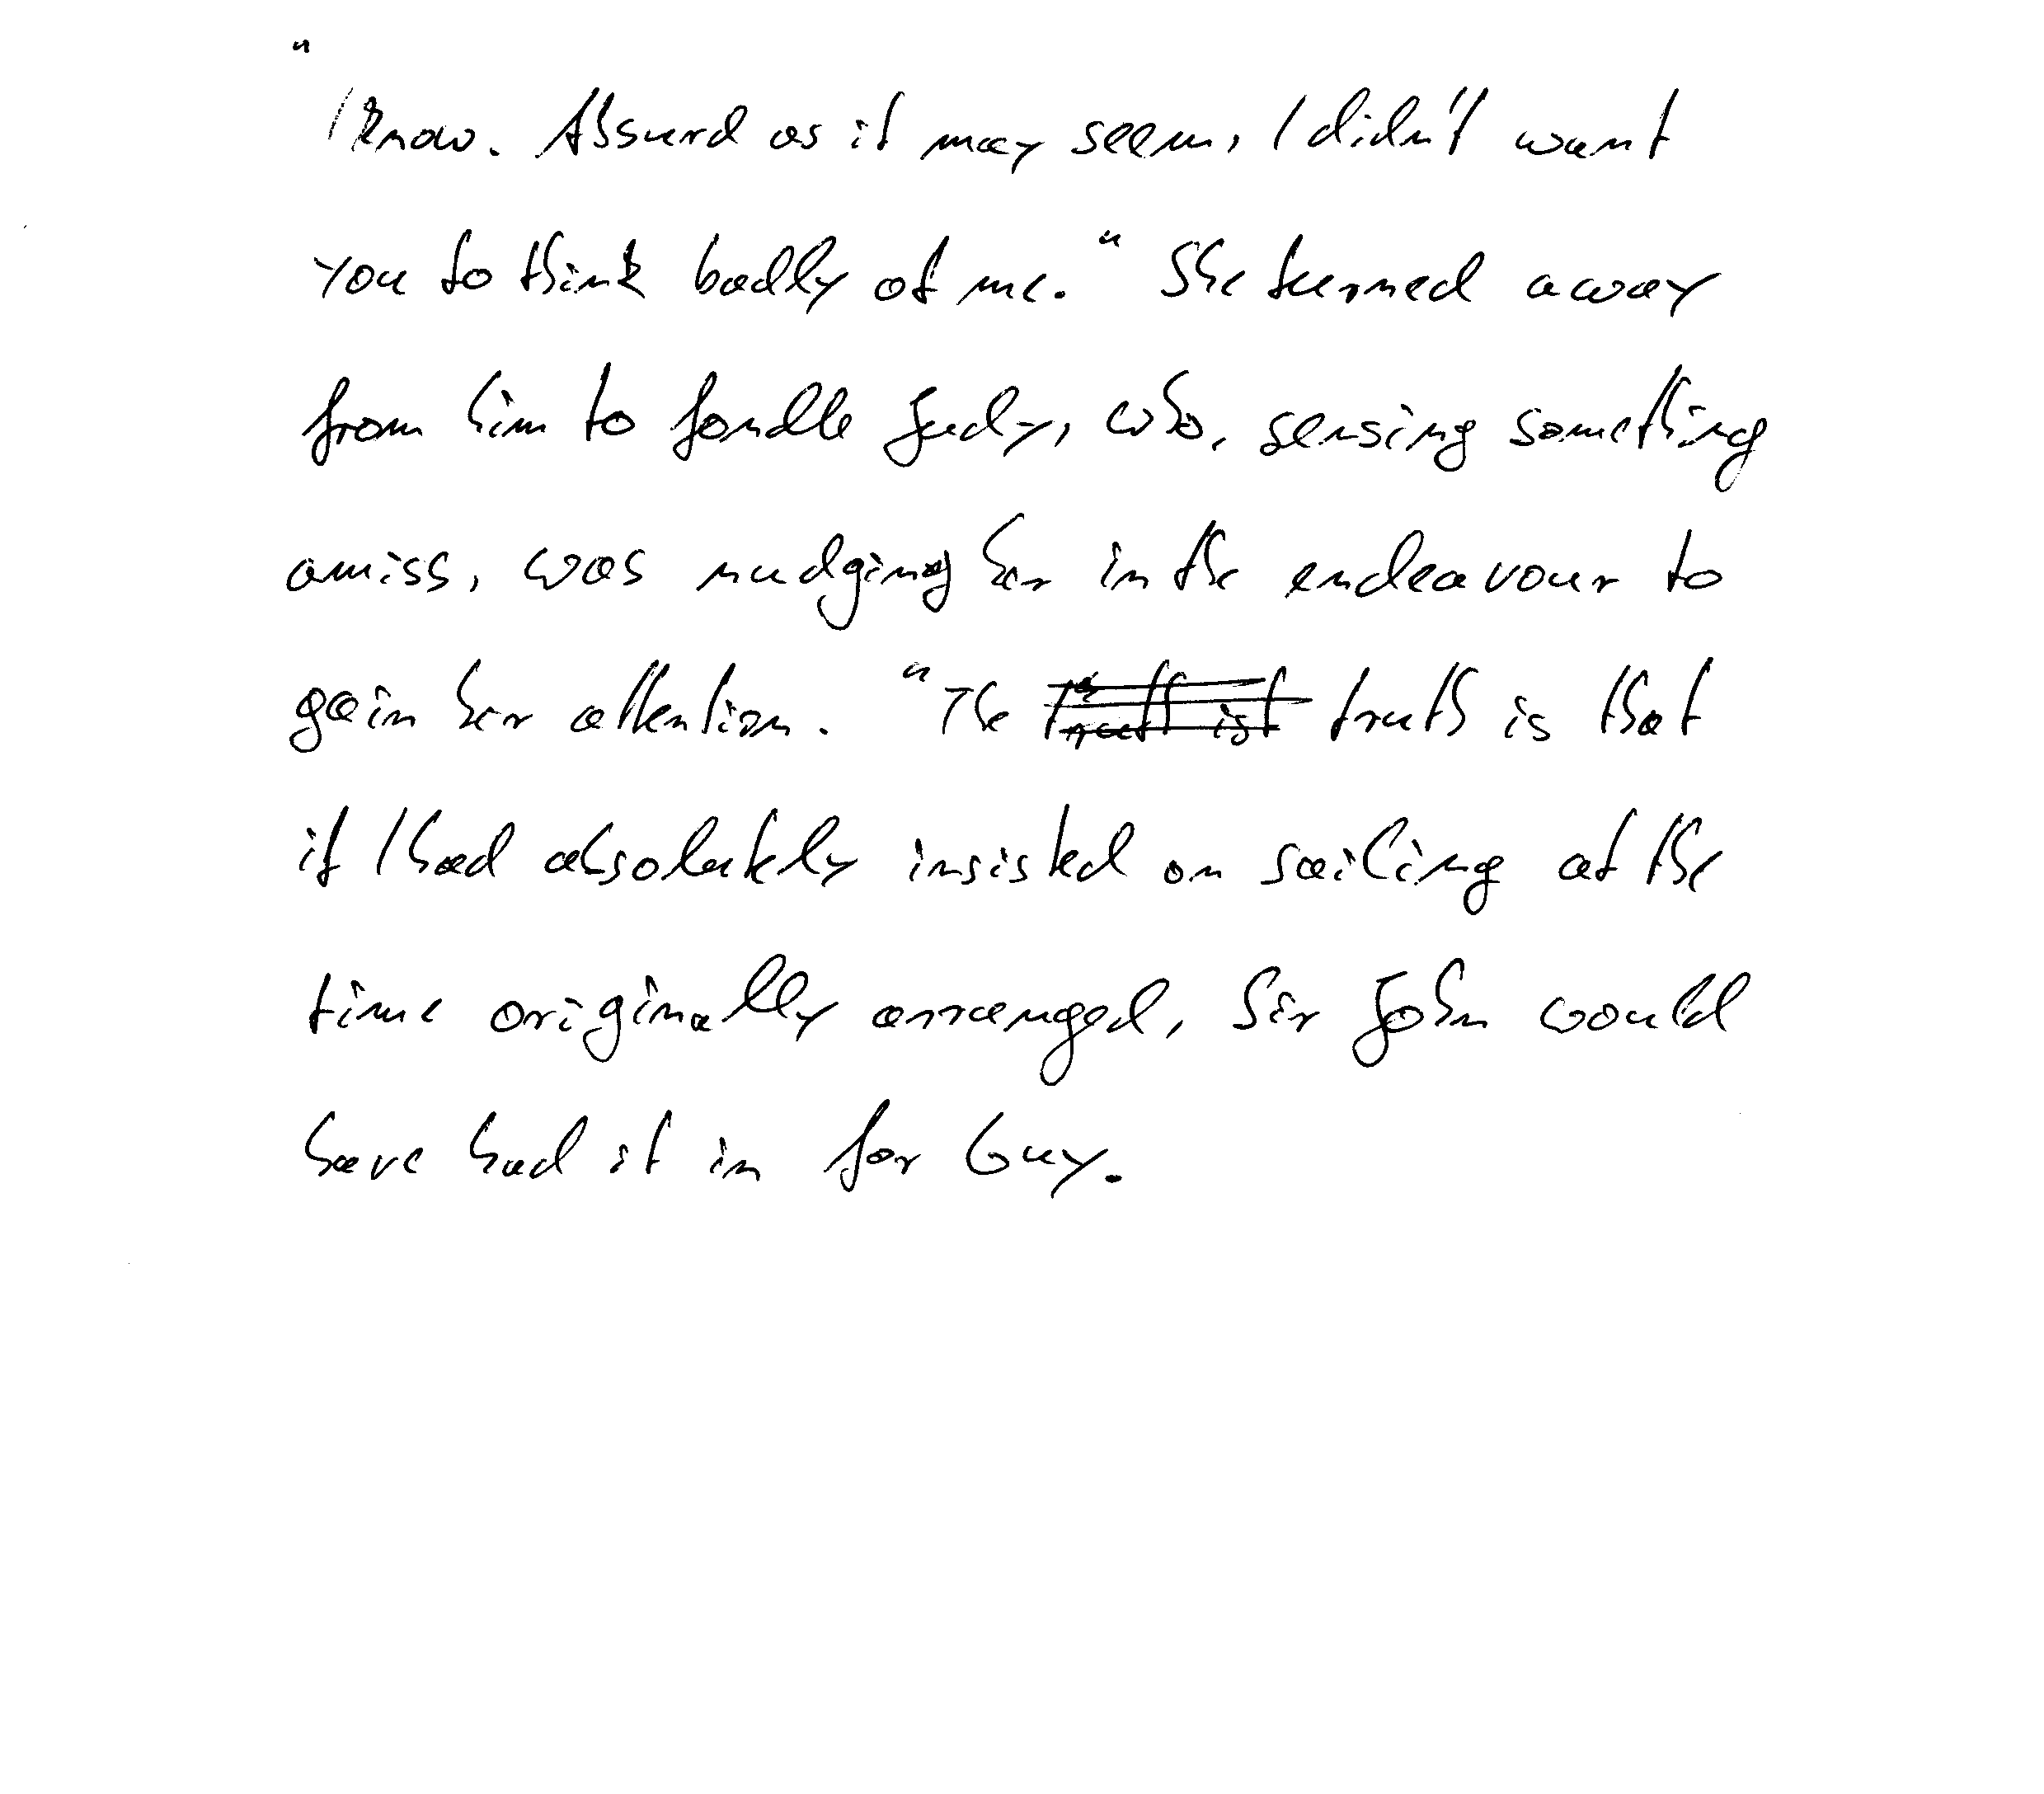 "I know. Absurd as it may seem, I didn't want
you to think badly of me." She turned away
from him to fondle Judy, who, sensing something
amiss, was nudging her in the endeavour to
gain her attention. "The truth is that
if I had absolutely insisted on sailing at the
time originally arranged, Sir John would
have had it in for Guy.